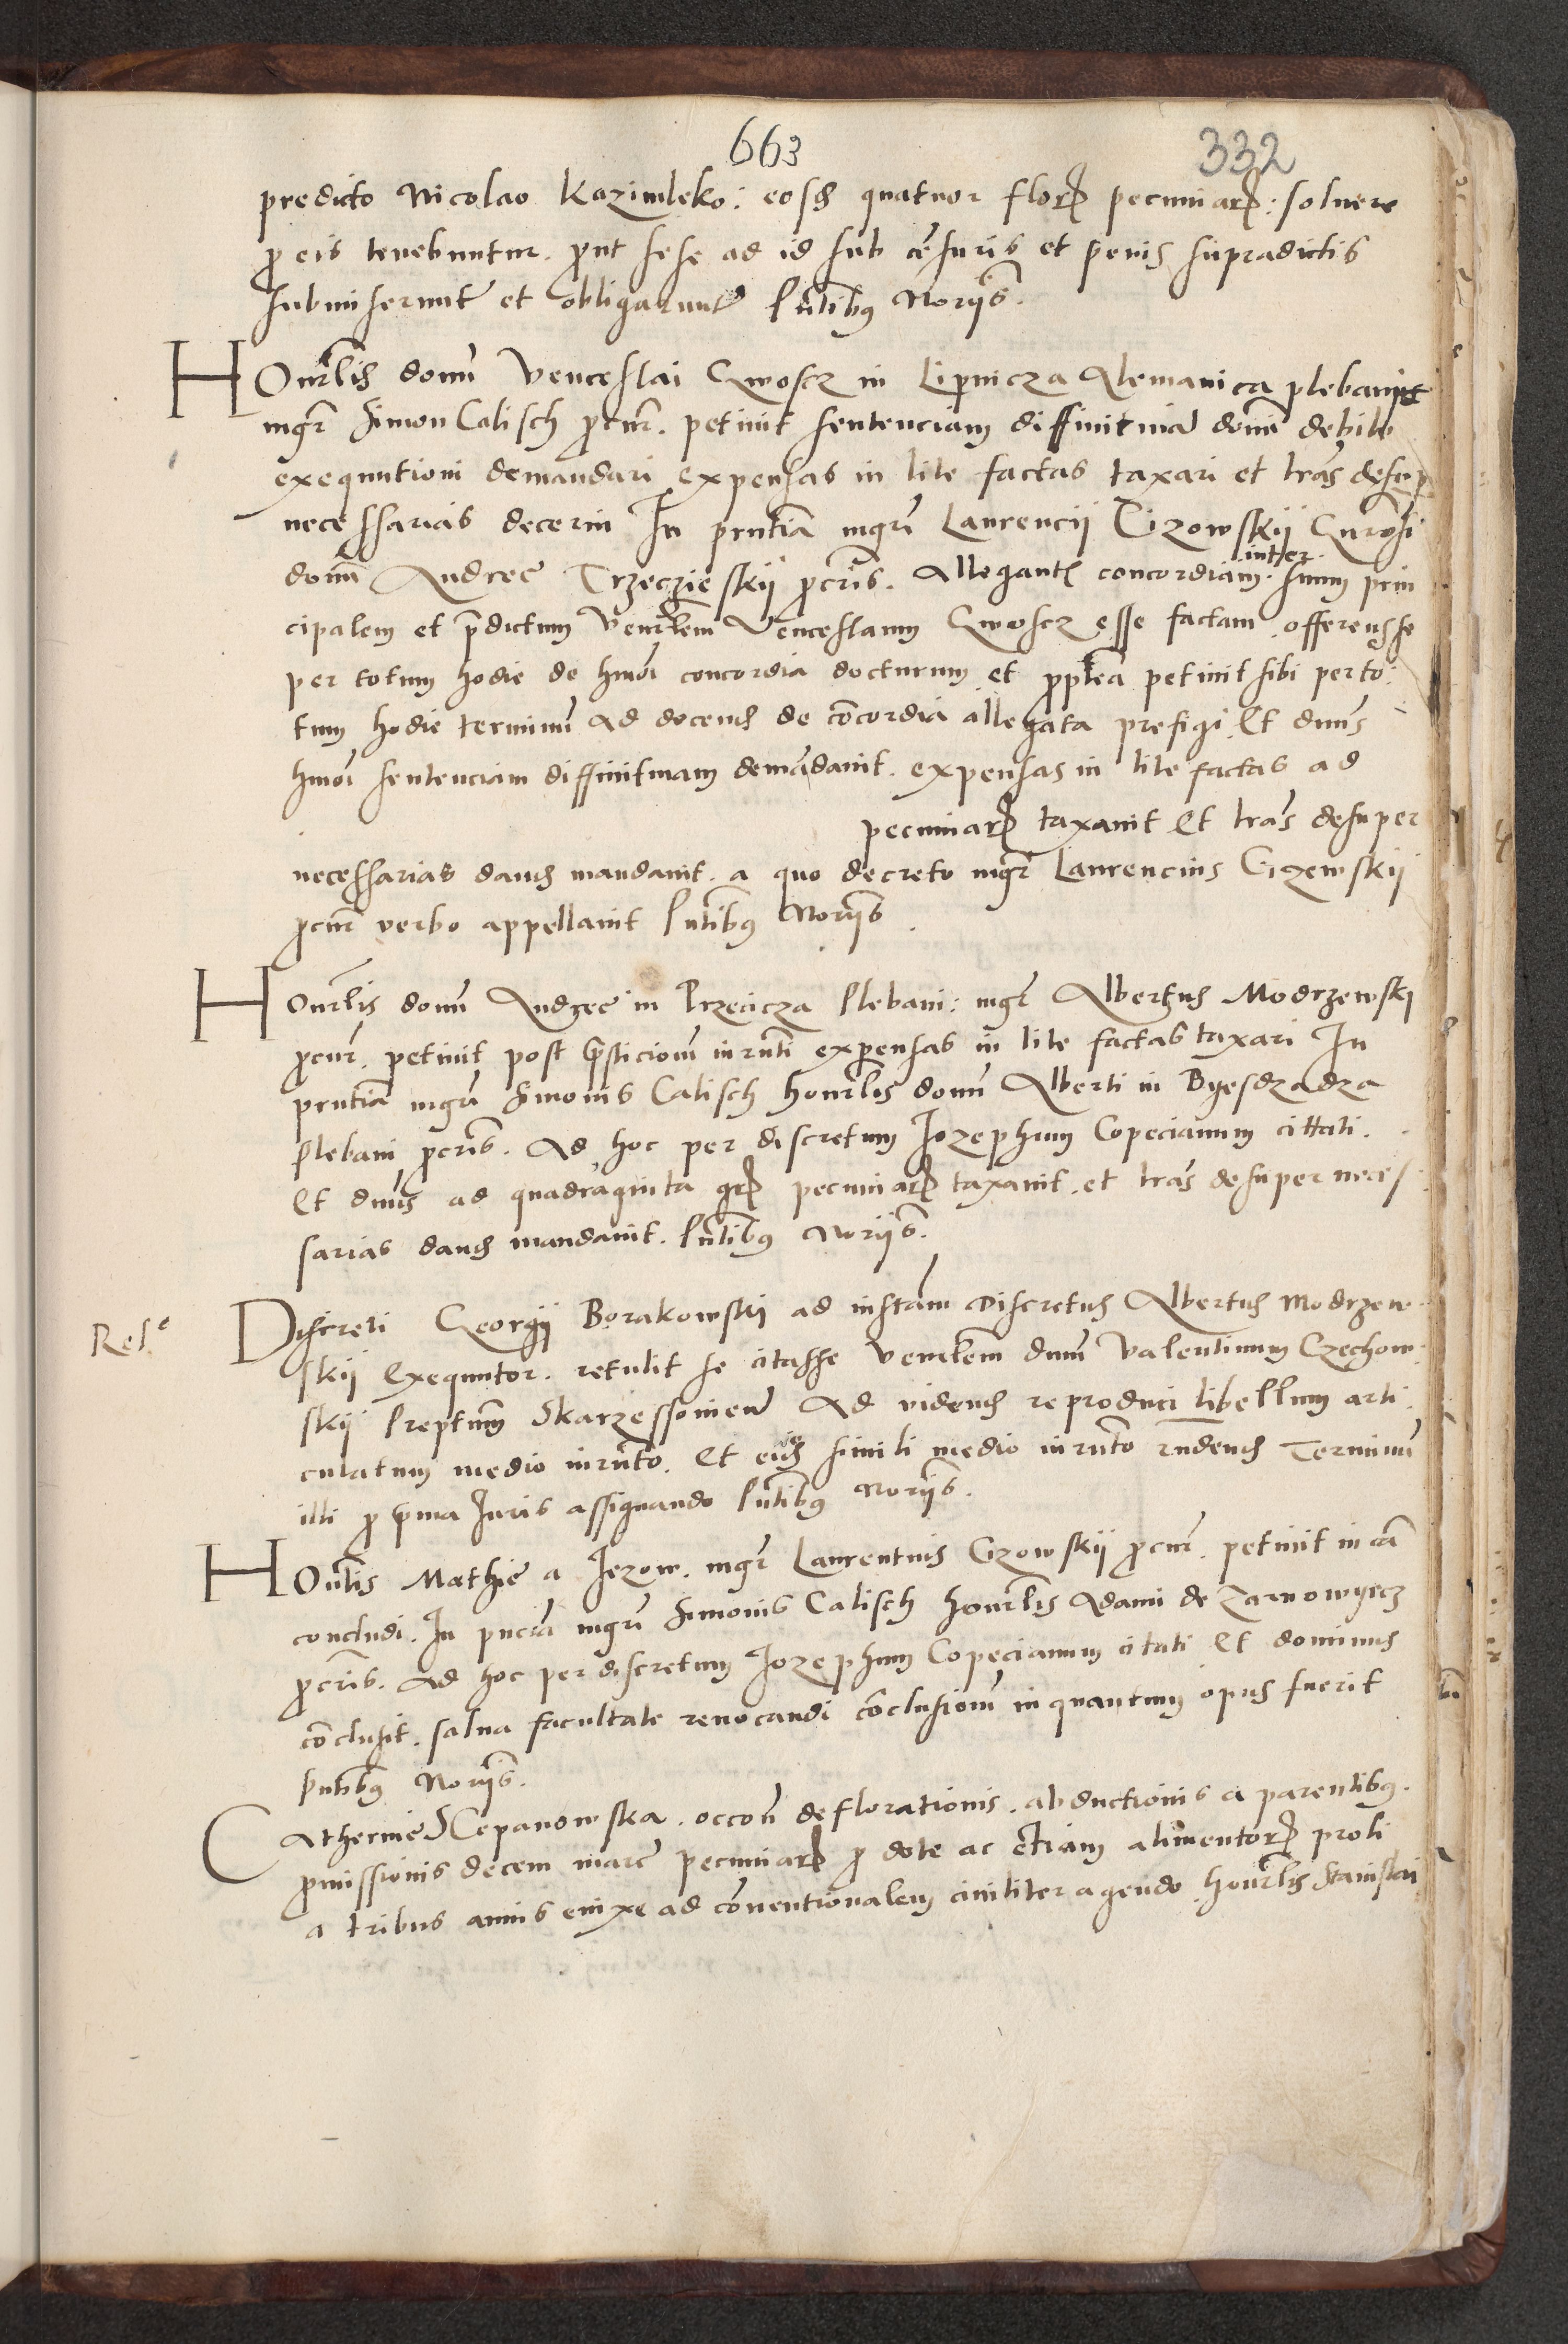 663 332
predicto Nicolao Kazimleko: eosd quatuor flor pecuniar: soluere
p eis tenebuntur. put sese ad id sub cēsuris et penis supradictis
submiserunt et obligarunt Pntibus Norijs.
HOnrlis domi Venceslai Gwosz in Lipnicza Alemanica plebani
mgr Simon Calisch pcur. petiuit sentenciam diffinitiua domi debite
exequutioni demandari expensas in lite factas taxari et lras desup
necessarias decerni In pntia mgri Laurencii Cizowskij
inter
domi Andree Trzecieskij pcris. Allegant concordiam suum prin
cipalem et pdictum Venrlem Venceslaum Gwosz esse factam offerens se
per totum hodie de hmoi concordia docturum et ppterea petiuit sibi per to:
tum hodie terminu ad docend de cōcordia allegata prefigi Et dnus
hmoi sentenciam diffinitiuam demādauit. expensas in lite factas ad
pecuniar taxauit Et lras desuper
necessarias dand mandauit. a quo decreto mgr Laurencius Cizewskij
pcur verbo appellauit Pntibus Norijs
HOnrlis domi Andree in Przecicza Plebani: mgr Albertus Modrzewski
pcur. petiuit post expensas in lite factas taxari In
pntia mgri Simonis Calisch honrlis domi Alberti in Byesdzadza
Plebani pcris. Ad hoc per discretum Jozephum Copecianum cittati.
Et dnus ad quadraginta gr pecuniar taxauit. et lras desuper neces
sarias dand mandauit. Pntibus Norijs.
Rel.
Discreti Georgij Borakowski ad instam Discretus Albertus Modrzew
skij Exequutor. retulit se citasse Venrlem dnum Valentinum Czechow
skij Preptum Skarzessouien Ad vidend reproduci libellum arti
culatum medio iurnto. Et eid simili medio iurnto rndend Terminu
illi p prima Juris assignando Pntibus Norijs.
HOnrlis Mathie a Jezow. mgr Laurentius Cizowskij pcur. petiuit in ca
concludi. In pncia mgri Simonis Calisch honrlis Adami de Zarnowyecz
pcris. Ad hoc per discretum Jozephum Copecianum citati Et dominus
cōclusit. salua facultate reuocandi cōclusioni in quantum opus fuerit
Pntibus Norijs.
CAtherine SCepanowska. occone deflorationis. abductionis a parentibus.
pmissionis decem marc pecuniar p dote ac etiam alimentor proli
a tribus annis enixe ad conuentionalem ciuiliter agendo honrlis Stanislai